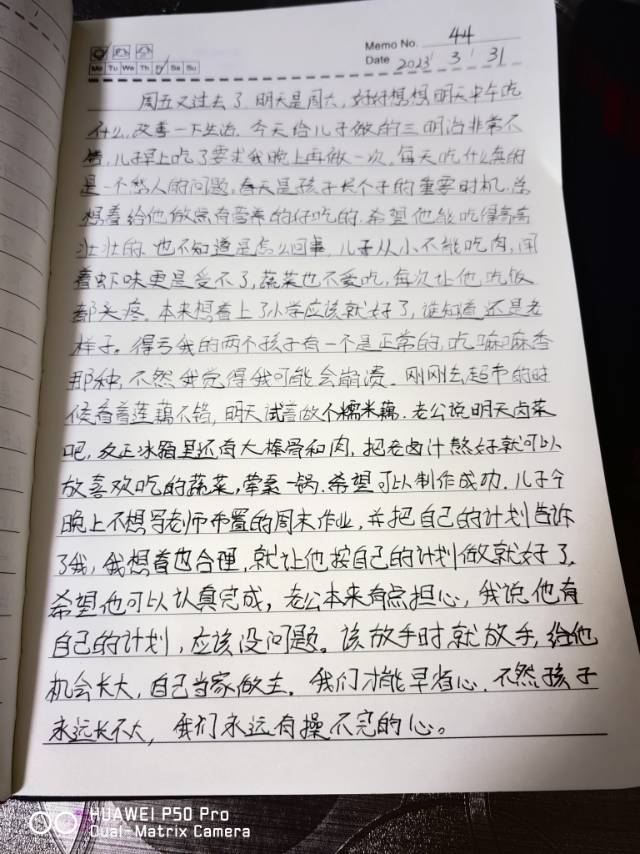 Memo No. 44
Mo Tu We Th Fr Sa Su
Date 2023 / 3 / 31
周五又过去了,明天是周六,好好想想明天中午吃
什么,改善一下生活。今天给儿子做的三明治非常不
错,儿子早上吃了要求我晚上再做一次,每天吃什么真的
是一个愁人的问题,春天是孩子长个子的重要时机,总
想着给他做点有营养的好吃的,希望他能吃得高高
壮壮的,也不知道是怎么回事,儿子从小不能吃肉,闻
着虾味更是受不了,蔬菜也不爱吃,每次让他吃饭
都头疼。本来想着上了小学应该就好了,谁知道还是老
样子。得亏我的两个孩子有一个是正常的,吃嘛嘛香
那种,不然我觉得我可能会崩溃。刚刚去超市的时
候看着莲藕不错,明天试着做个糯米藕。老公说明天卤菜
吧,反正冰箱里还有大棒骨和肉,把老卤汁熬好就可以
放喜欢吃的蔬菜,荤素一锅。希望可以制作成功。儿子今
晚上不想写老师布置的周末作业,并把自己的计划告诉
了我,我想着也合理,就让他按自己的计划做就好了。
希望他可以认真完成,老公本来有点担心,我说他有
自己的计划,应该没问题。该放手时就放手,给他
机会长大,自己当家做主。我们才能早省心,不然孩子
永远长不大,我们永远有操不完的心。
HUAWEI P50 Pro
Dual-Matrix Camera